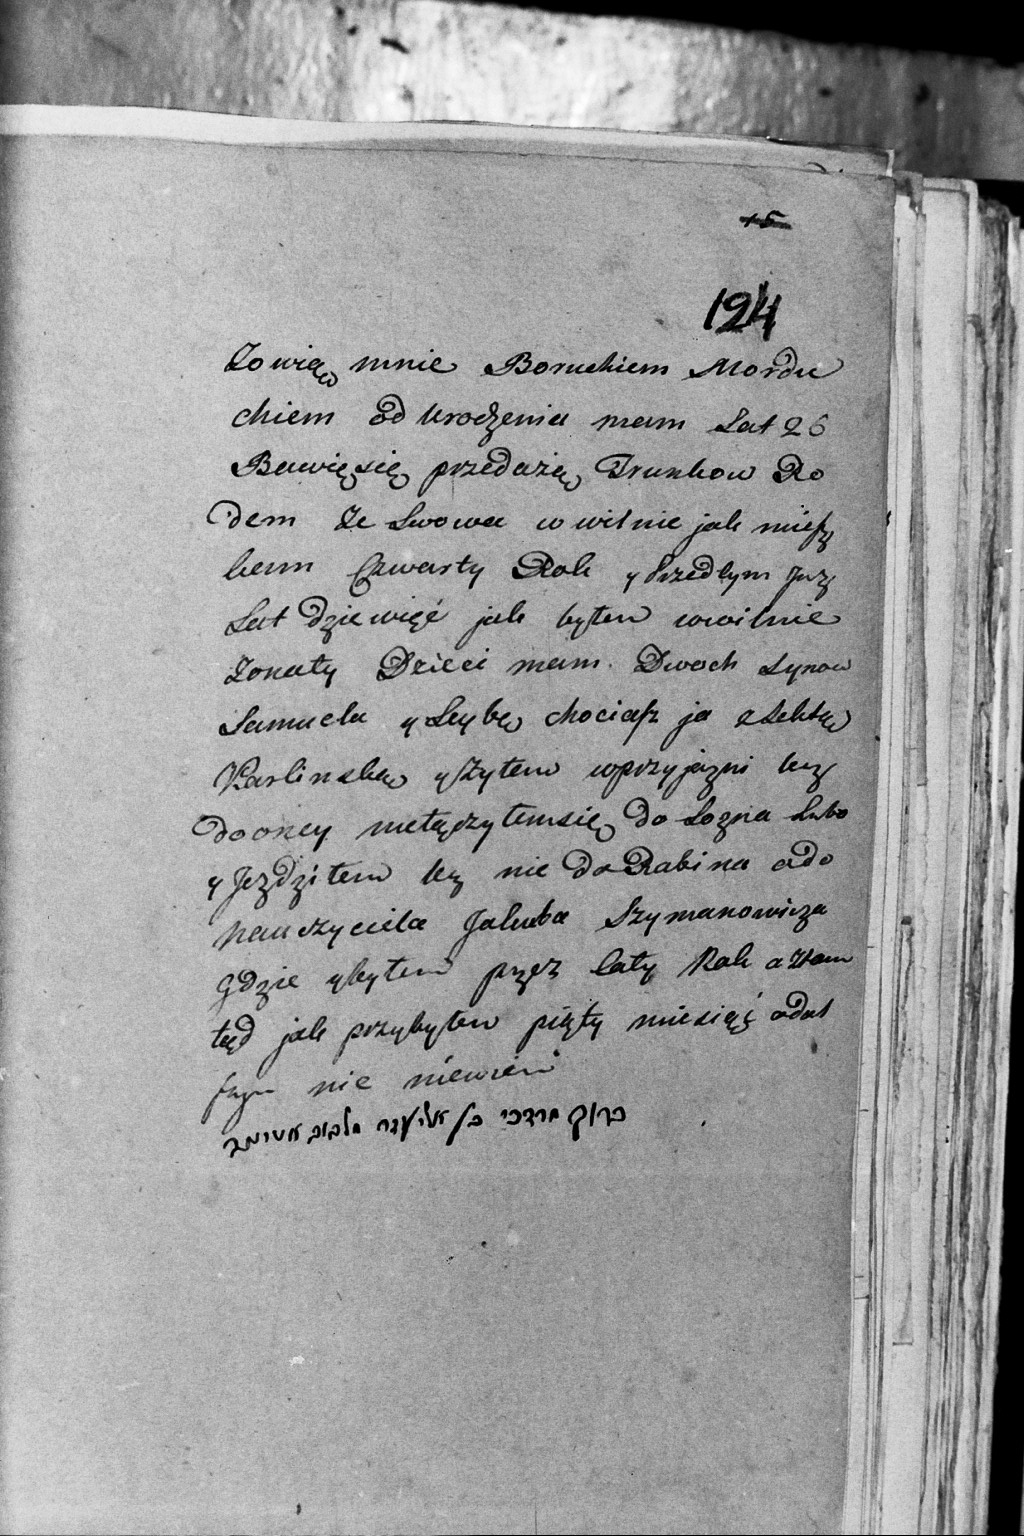 15
124
Zowią mnie Boruchiem Mordu
chiem od Urodzenia mam Lat 26
Bawię się przedażą Trunkow Ro
dem Ze Lwowa w wilnie jak miesz
kam Czwarty Rok y Przedtym Juz
Lat dziewięć jak byłem wwilnie
Zonaty Dzieci mam Dwoch Synow
Samuela y Leybę chociasz ja z Sektą
Karlinską y Żyłem wprzyjazni lecz
do oney nie łączyłem się do Lozna Lubo
y Jezdziłem lecz nie do Rabina a do
nauczyciela Jakuba Szymanowicza
Gdzie y byłem przez cały Rok a Ztam
tąd jak przybyłem piąty miesiąć a dal
szym nie niewiem
ברוך מרדכי בן אליעזר